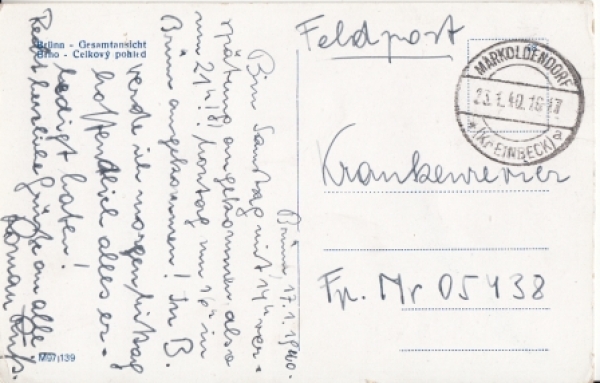 Brünn - Gesamtansicht
Brno - Celkový pohled
Feldpost
MARKOLDENDORF
23.1.40.16-17
(Kr. EINBECK) a
Krankenrevier
Fp. Nr 05438
Brünn, 17.1.1940.
Bin Samstag mit 14 h ver-
spätung angekommen also
um 21 h! Montag um 16 h in
Brünn angekommen! In B.
werde ich morgen Mittag
hoffentlich alles er-
ledigt haben!
Recht herzliche Grüße an alle
Roman
M97/139